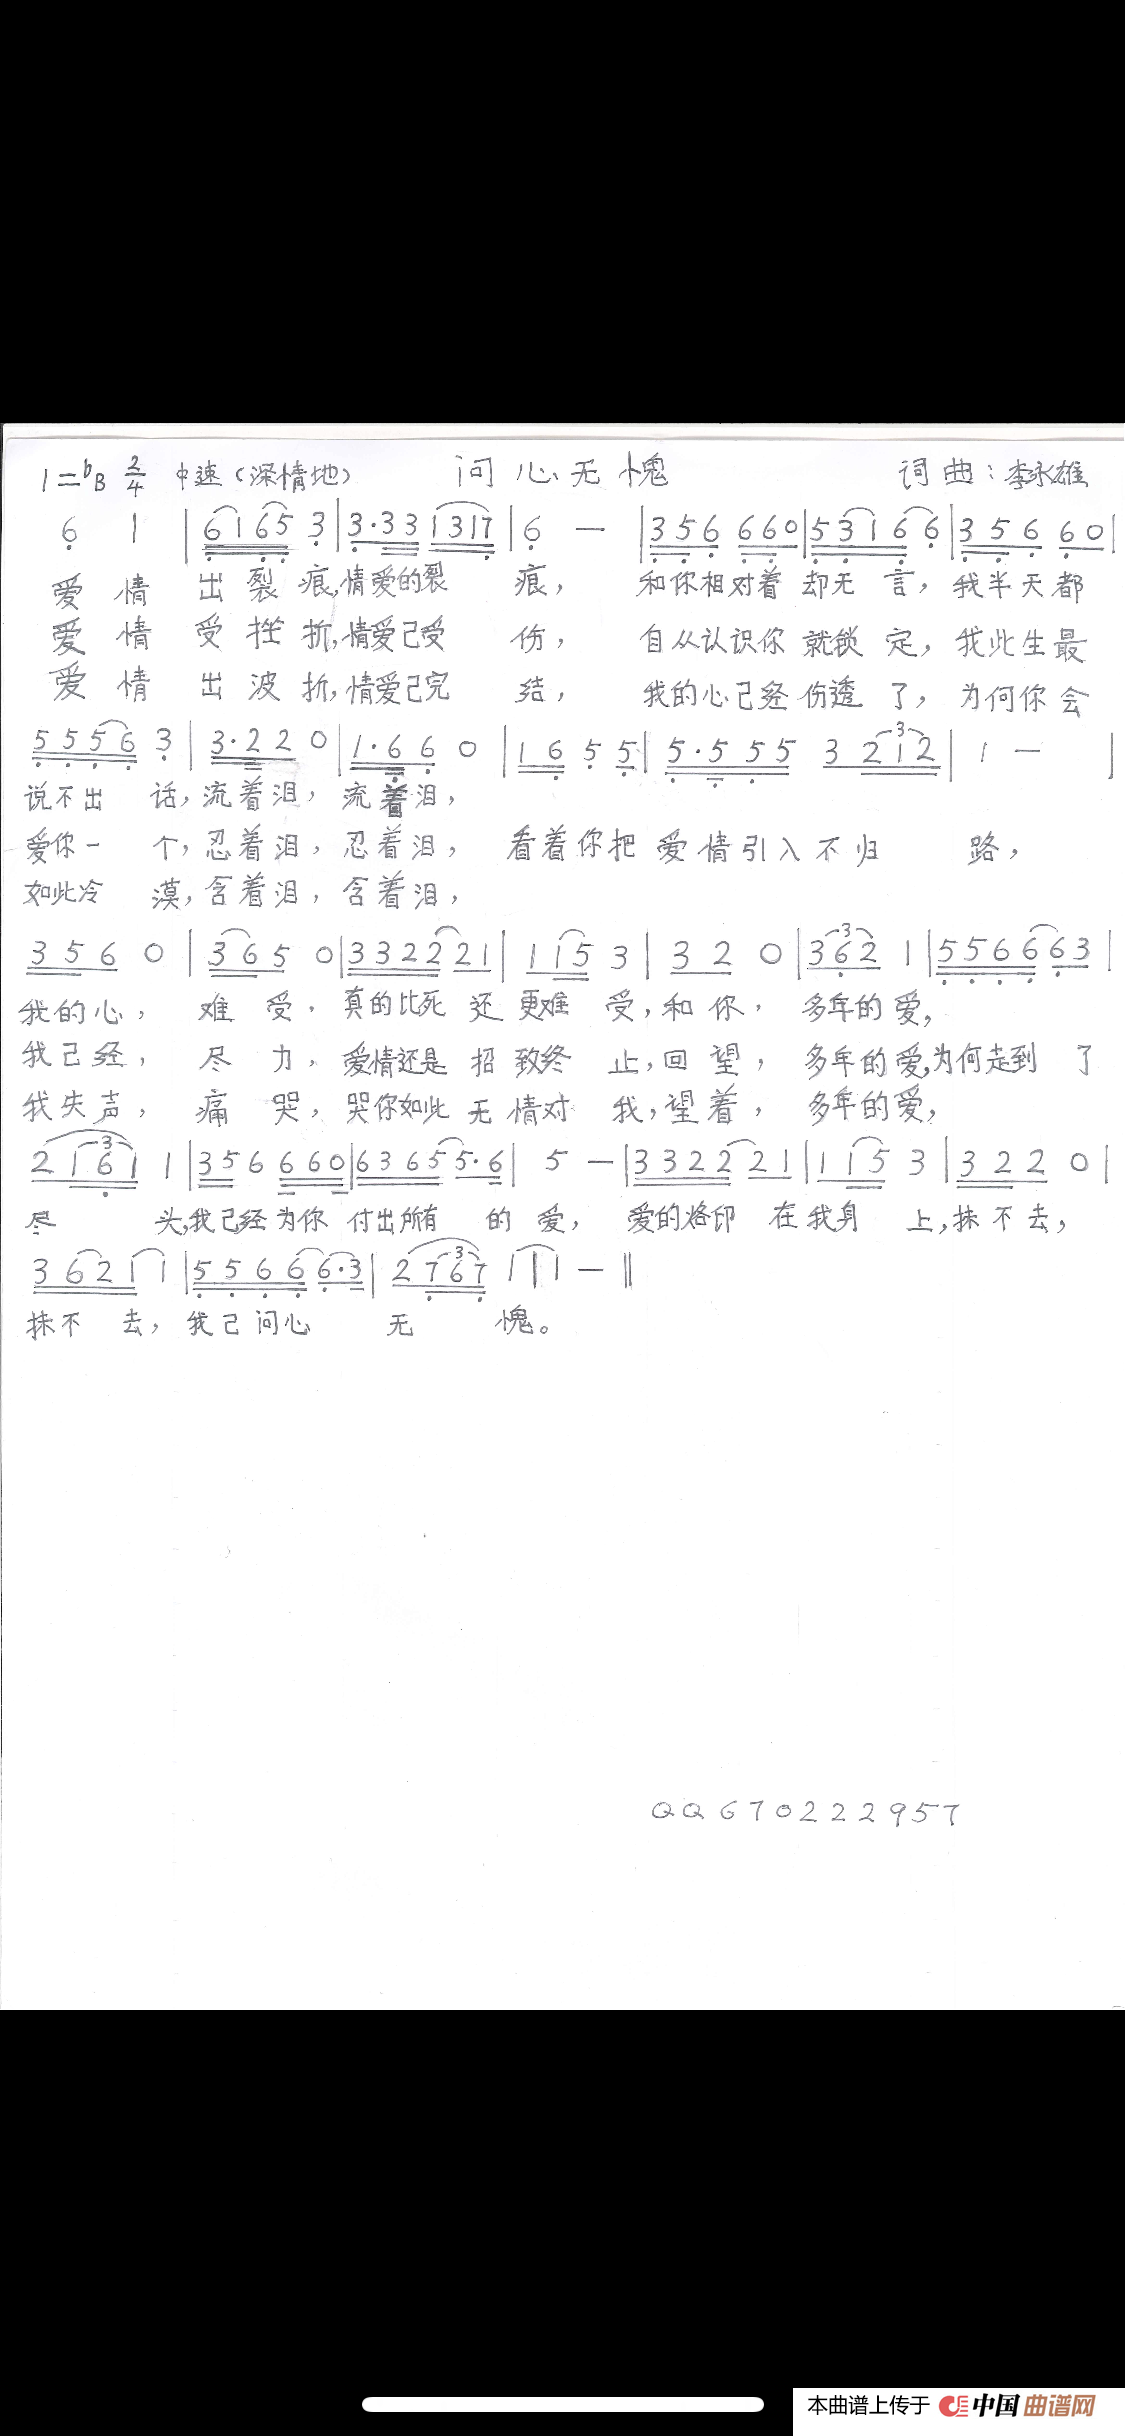 1=bB 2/4 中速(深情地) 问心无愧 词曲:李永雄
6 1 | 6 1 6 5 3 | 3·3 3 1 3 1 7 | 6 — | 3 5 6 6 6 0 | 5 3 1 6 6 | 3 5 6 6 0 |
爱情 出裂痕,情爱的裂 痕, 和你相对着却无言,我半天都
爱情 受挫折,情爱已受 伤, 自从认识你就锁定,我此生最
爱情 出波折,情爱已完 结, 我的心已经伤透了,为何你会
5 5 5 6 3 | 3·2 2 0 | 1·6 6 0 | 1 6 5 5 | 5·5 5 5 3 2 1 2 | 1 —
说不出 话,流着泪,流着泪,
爱你一 个,忍着泪,忍着泪, 看着你把爱情引入不归 路,
如此冷 漠,含着泪,含着泪,
3 5 6 0 | 3 6 5 0 | 3 3 2 2 2 2 1 | 1 1 5 3 | 3 2 0 | 3 6 2 1 | 5 5 6 6 6 3 |
我的心, 难 受,真的比死还更难 受,和你, 多年的爱,
我已经, 尽 力,爱情还是招致终 止,回望, 多年的爱,为何走到 了
我失声, 痛 哭,哭你如此无情对 我,望着, 多年的爱,
2 1 6 1 1 | 3 5 6 6 6 0 | 6 3 6 5 5 5·6 | 5 — | 3 3 2 2 2 2 1 | 1 1 5 3 | 3 2 2 0 |
尽 头,我已经为你付出所有 的爱, 爱的烙印 在我身 上,抹不去,
3 6 2 1 1 | 5 5 6 6 6·3 | 2 7 6 7 1 | 1 — ‖
抹不 去, 我已问心 无 愧。
QQ670222957
本曲谱上传于 中国曲谱网